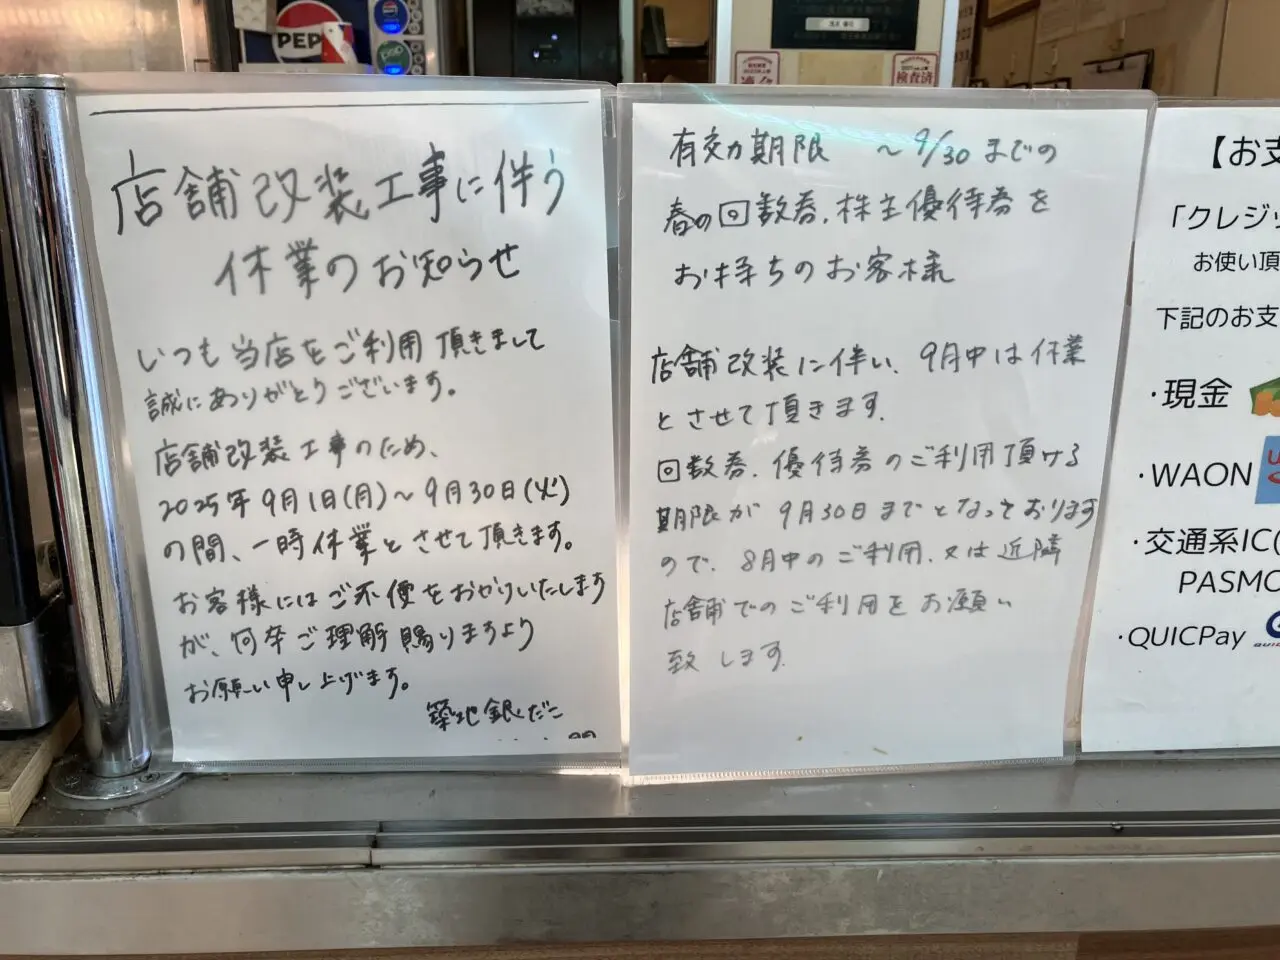 PEPSI
検査済
店舗改装工事に伴う
休業のお知らせ
いつも当店をご利用頂きまして
誠にありがとうございます。
店舗改装工事のため、
2025年9月1日(月)〜9月30日(火)
の間、一時休業とさせて頂きます。
お客様にはご不便をおかけいたします
が、何卒ご理解賜りますよう
お願い申し上げます。
築地銀だこ
有効期限 〜9/30までの
春の回数券、株主優待券を
お持ちのお客様
店舗改装に伴い、9月中は休業
とさせて頂きます。
回数券、優待券のご利用頂ける
期限が9月30日までとなっております
ので、8月中のご利用、又は近隣
店舗でのご利用をお願い
致します。
【お支
「クレジッ
お使い頂
下記のお支
・現金
・WAON
・交通系IC(
PASMO
・QUICPay